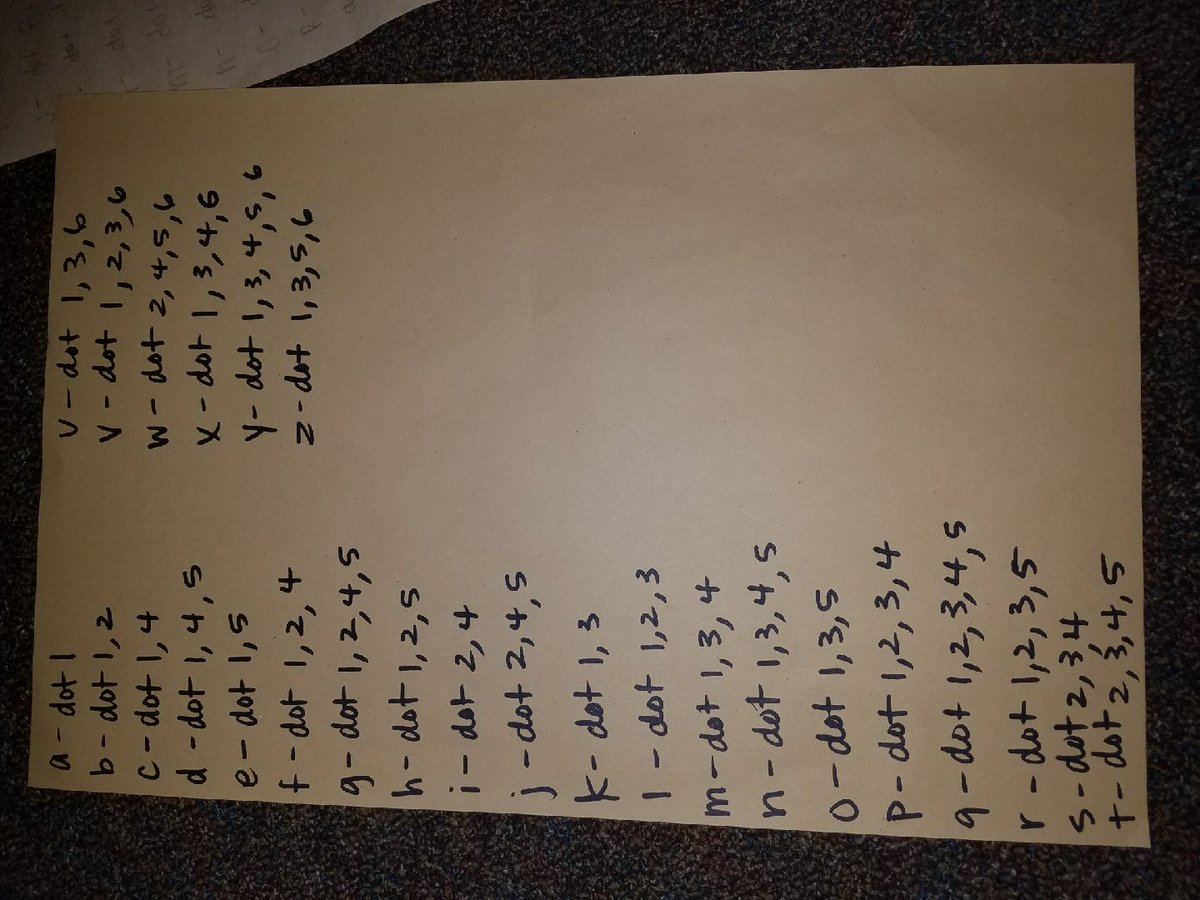 a - dot 1
b - dot 1,2
c - dot 1,4
d - dot 1,4,5
e - dot 1,5
f - dot 1,2,4
g - dot 1,2,4,5
h - dot 1,2,5
i - dot 2,4
j - dot 2,4,5
k - dot 1,3
l - dot 1,2,3
m - dot 1,3,4
n - dot 1,3,4,5
o - dot 1,3,5
p - dot 1,2,3,4
q - dot 1,2,3,4,5
r - dot 1,2,3,5
s - dot 2,3,4
t - dot 2,3,4,5
u - dot 1,3,6
v - dot 1,2,3,6
w - dot 2,4,5,6
x - dot 1,3,4,6
y - dot 1,3,4,5,6
z - dot 1,3,5,6